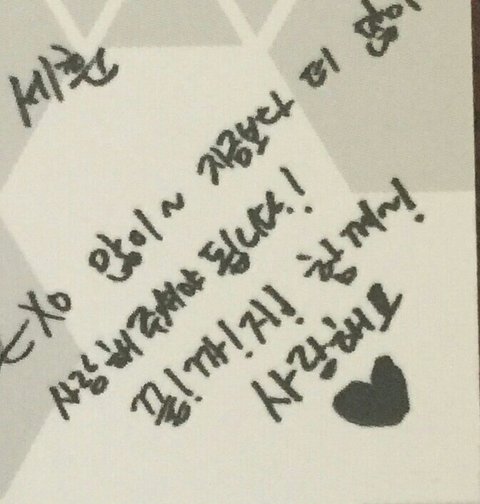 세훈
EXO 많이~ 지금보다 더 많이
사랑해주셔야 됩니다!
끝!까!지! 함께~!
사랑해요 ♥